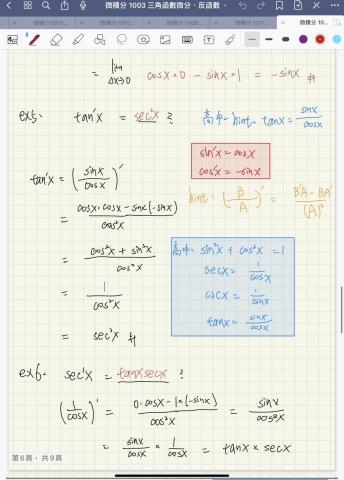 微積分 1003 三角函數微分、反函數
微積分 0919...
微積分 0912...
微積分 0926...
微積分 1017...
微積分 10...
= lim Δx→0 cosx·0 - sinx·1 = -sinx #
ex5: tan'x = sec²x ?
高中 hint: tanx = sinx/cosx
sin'x = cosx
cos'x = -sinx
hint = (B/A)' = B'A - BA'/(A)²
tan'x = (sinx/cosx)'
= cosx·cosx - sinx(-sinx)/cos²x
= cos²x + sin²x/cos²x
= 1/cos²x
= sec²x #
高中: sin²x + cos²x = 1
secx = 1/cosx
cscx = 1/sinx
tanx = sinx/cosx
ex6: sec'x = tanxsecx ?
(1/cosx)' = 0·cosx - 1×(-sinx)/cos²x = sinx/cos²x
= sinx/cosx × 1/cosx = tanx × secx
第 6 頁，共 9 頁